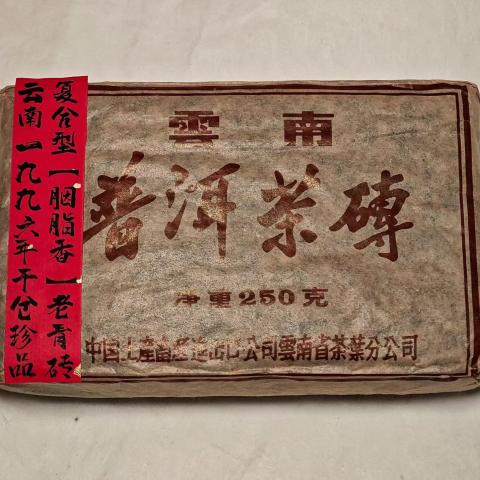 复合型【胭脂香】老青砖
云南一九九六年干仓珍品
雲南
普洱茶磚
净重250克
中国土産畜産進出口公司雲南省茶葉分公司